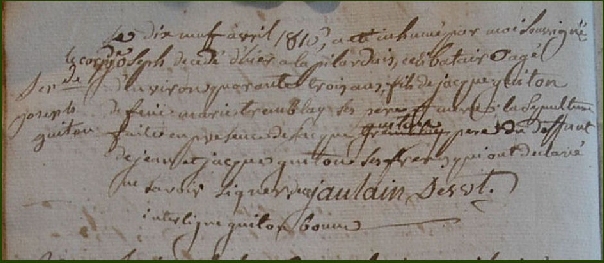 Le dix neuf avril 1810, a été inhumé par moi soussigné
le corps de joseph décédé d'hier a la pilardais, célibataire agé
Sep.re
joseph
guiton
d'environ quarante trois ans, fils de jacque guiton
de feue marie tremblay ses pere et mere la sépulture
faite en présence de jacque guiton pere du deffunt
de jean et jacque guiton ses freres qui ont déclaré
ne savoir signer jauldain Desst.
interligne guiton bonne